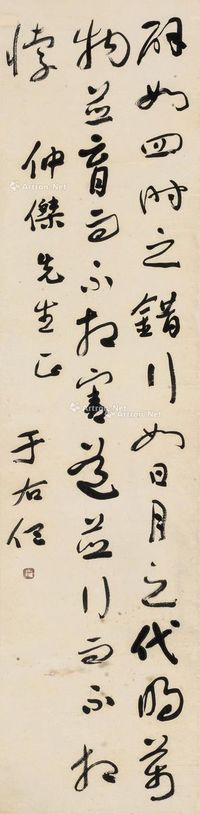 辟如四时之错行如日月之代明万
物并育而不相害道并行而不相
悖
仲傑先生正
于右任